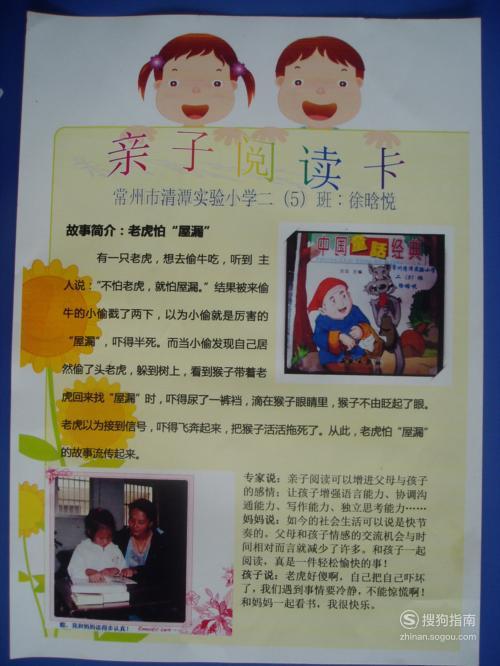 亲子阅读卡
常州市清潭实验小学二（5）班：徐晗悦
故事简介：老虎怕“屋漏”
有一只老虎，想去偷牛吃，听到 主
人说：“不怕老虎，就怕屋漏。”结果被来偷
牛的小偷戳了两下，以为小偷就是厉害的
“屋漏”，吓得半死。而当小偷发现自己居
然偷了头老虎，躲到树上，看到猴子带着老
虎回来找“屋漏”时，吓得尿了一裤裆，滴在猴子眼睛里，猴子不由眨起了眼。
老虎以为接到信号，吓得飞奔起来，把猴子活活拖死了。从此，老虎怕“屋漏”
的故事流传起来。
中国童话经典
常州清潭实验小学
二（5）班
徐晗悦
专家说：亲子阅读可以增进父母与孩子
的感情；让孩子增强语言能力、协调沟
通能力、写作能力、独立思考能力……
妈妈说：如今的社会生活可以说是快节
奏的。父母和孩子情感的交流机会与时
间相对而言就减少了许多。和孩子一起
阅读，真是一件轻松愉快的事！
孩子说：老虎好傻啊，自己把自己吓坏
了，我们遇到事情要冷静，不能惊慌啊！
和妈妈一起看书，我很快乐。
瞧，我和妈妈读得多认真！
Romantic Love
搜狗指南
zhinan.sogou.com